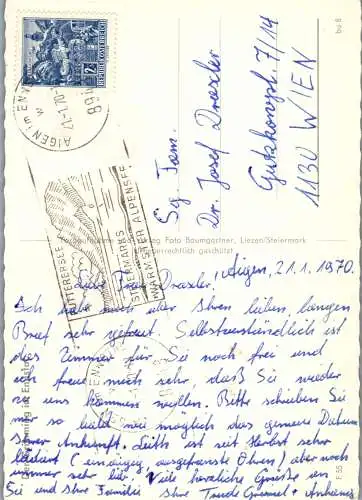 REPUBLIK ÖSTERREICH
2
AIGEN im ENNSTAL
21.-1.70-
8943
PUTTERERSEE
STEIERMARKS
WÄRMSTER ALPENSEE
Sg. Fam.
Dr. Josef Draxler
Gutzkowpl. 7/14
1130 WIEN
Foto Baumgartner, Liezen/Steiermark
Urheberrechtlich geschützt
bu 8
F 55
Aigen, 21.1.1970.
Liebe Frau Draxler!
Ich habe mich über Ihren lieben, langen
Brief sehr gefreut. Selbstverständlich ist
das Zimmer für Sie noch frei und
ich freue mich sehr, daß Sie wieder
zu uns kommen wollen. Bitte schreiben Sie
mir so bald wie möglich das genaue Datum
Ihrer Ankunft. ist seit Herbst sehr
lädiert ( ausgefranste Ohren) aber noch
immer sehr lieb! Viele herzliche Grüße an
Sie und Ihre Familie Ihre